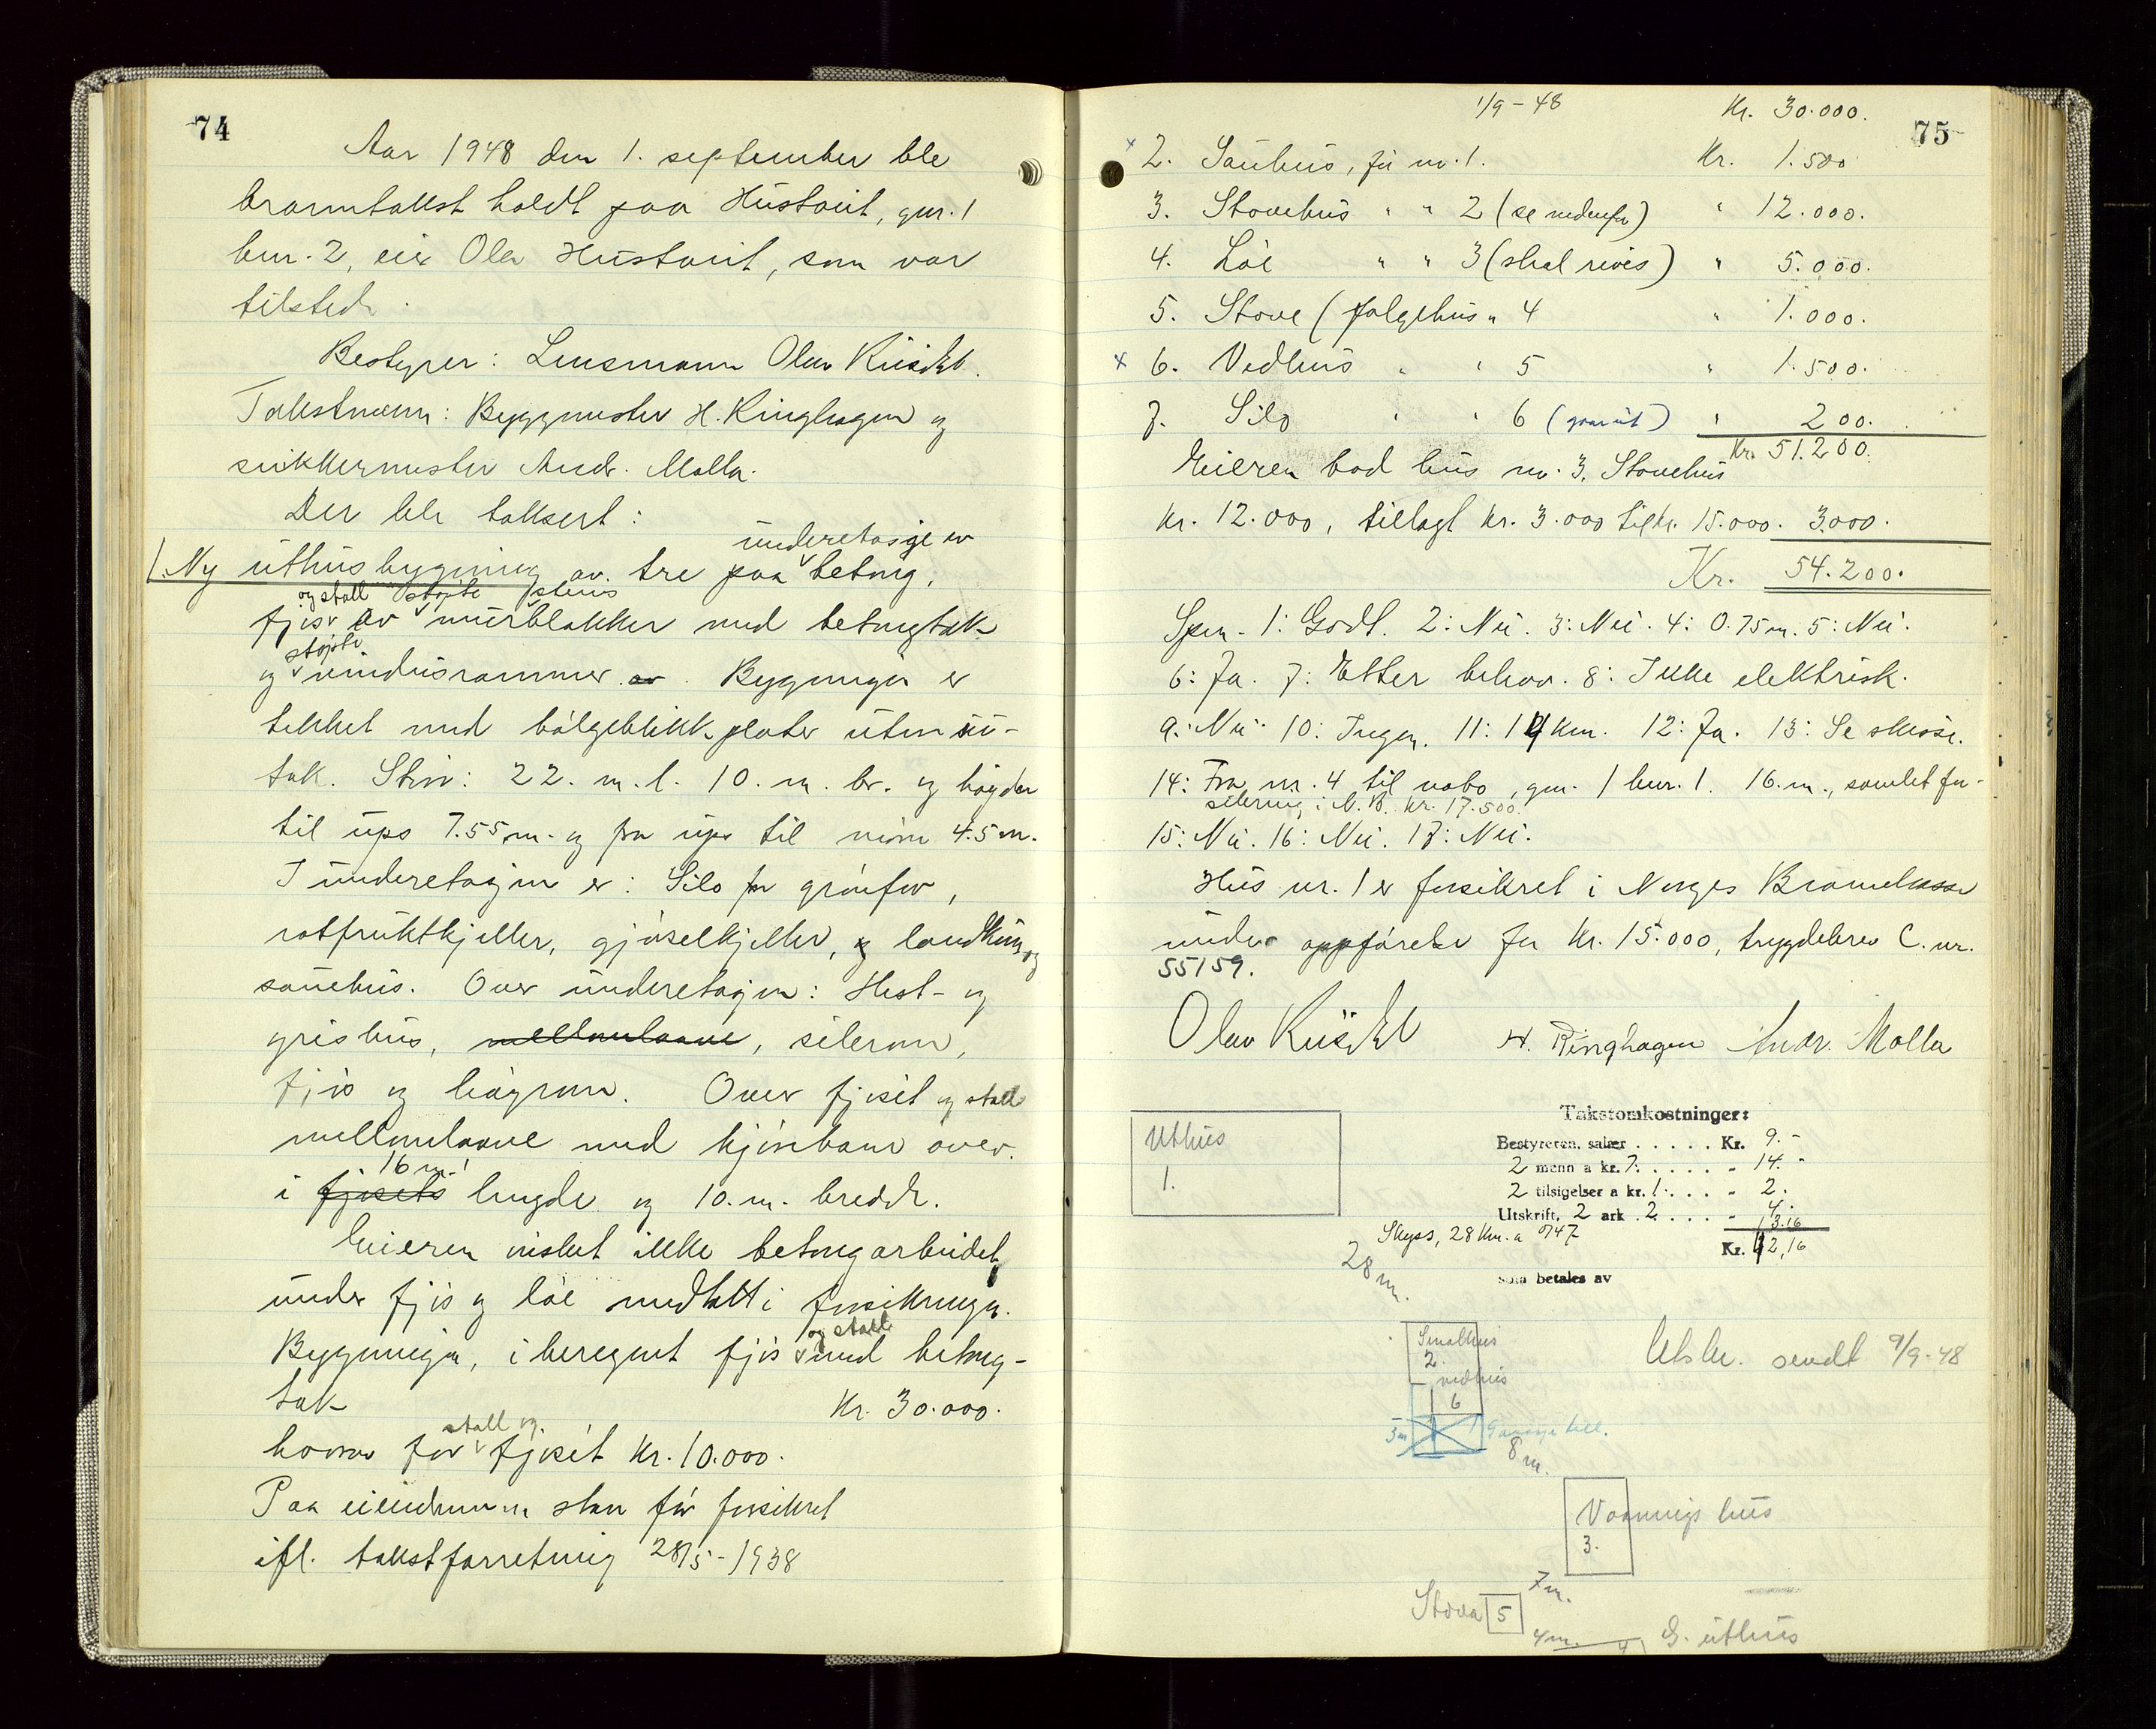 74
Aar 1948 den 1. september ble
branntakst holdt paa Hustveit, gnr. 1
bnr. 2, eier Ola Hustveit, som var
tilstede.
Bestyrer: Lensmann Olav
Takstmenn: Byggmester H. Ringhagen og
snikkermester Andr. Molla.
Der ble taksert:
underetasje av
1. Ny uthusbygning av tre paa betong,
og stall støpte steins
fjøs av murblokker med betongtak
støpte
og vindusrammer. Bygningen er
tekket med bølgeblikkplater uten su-
tak. Stør: 22. m. l. 10. m. br. og høyden
til ups 7.55 m. og fra ups til møne 4.5 m.
I underetasjen er: Silo for grønfor,
rotfruktkjeller, gjøselkjeller, og landkum og
sauehus. Over underetasjen: Hest- og
grishus, mellomlaave, silorom,
fjøs og høyrom. Over fjøset og stall
mellomlaave med kjørebane over.
16 m.
i fjøsets lengde og 10. m. bredde.
Eieren ønsket ikke betongarbeidet
under fjøs og løe medtatt i forsikringen.
og stall
Bygningen, iberegnet fjøs med betong-
tak Kr. 30.000.
stall og
hvorav for fjøset Kr. 10.000.
Paa eiendommen staar før forsikret
ifl. takstforretning 28/5-1938
75
1/9-48 Kr. 30.000.
x 2. Sauhus, før nr. 1. Kr. 1.500
3. Stovehus " " 2 (se nedenfor) " 12.000.
4. Løe " " 3 (skal rives) " 5.000.
5. Stove (følgehus " 4 " 1.000.
x 6. Vedhus " " 5 " 1.500.
7. Silo " " 6 (gaar ut) " 200.
Kr. 51.200.
Eieren bad hus nr. 3. Stovehus
Kr. 12.000, tillagt Kr. 3.000 til Kr. 15.000. 3.000.
Kr. 54.200.
Spm. 1: Godt. 2: Nei. 3: Nei. 4: 0.75 m. 5: Nei.
6: Ja. 7: Etter behov. 8: Ikke elektrisk.
9: Nei 10: Ingen. 11: 14 km. 12: Ja. 13: Se skisse.
14: Fra nr. 4 til nabo, gnr. 1 bnr. 1. 16. m., samlet for-
sikring i N. B. kr. 17.500.
15: Nei. 16: Nei. 17: Nei.
Hus nr. 1 er forsikret i Norges Brannkasse
under oppførelse for Kr. 15.000, trygdebrev C. nr.
55159.
Olav H. Ringhagen Andr. Molla
Uthus
1.
Takstomkostninger:
Bestyreren, salær . . . . . Kr. 9.-
2 menn a kr. 7. . . . . . " 14.-
2 tilsigelser a kr. 1. . . . " 2.
Utskrift, 2 ark . 2 . . . . " 4.
Skyss, 28 Km. a 0/47 13.16
Kr. 42,16
som betales av
28 m.
Smalhus
2.
vedhus
6
3 m Garasje till.
8 m.
Utskr. sendt 9/9-48
Vaanings hus
3.
7 m.
Stova 5
4 m. 4 G. uthus